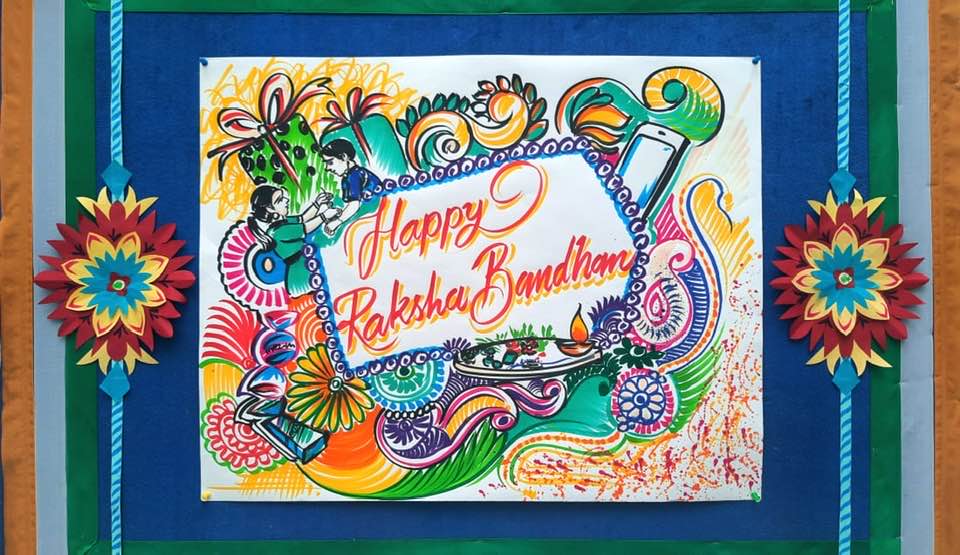 Happy
Raksha Bandhan